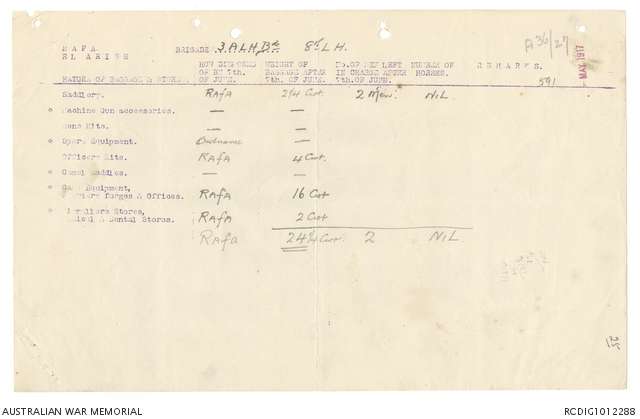 RAFA
EL ARISH
BRIGADE 3. A L H Bde 8th L.H.
A36/27
MAY 1917
HOW DISPOSED WEIGHT OF NO. OF MEN LEFT NUMBER OF REMARKS.
OF BY 7th. BAGGAGE AFTER IN CHARGE AFTER HORSES.
NATURE OF BAGGAGE & STORES. OF JUNE. 7th. OF JUNE. 7th. OF JUNE. 591
Saddlery. RAfA 2 Men. NIL
* Machine Gun accessories. — —
Mens Kits. — —
* Spare Equipment. Ordnance —
Officers Kits. RAfA 4 Cwt.
* Camel Saddles. — —
* Camp Equipment,
Farriers forges & Offices. RAfA 16 Cwt
* Stores,
Medical & Dental Stores. RAfA 2 Cwt
RAfA 24¼ Cwt. 2 NIL
AUSTRALIAN WAR MEMORIAL
RCDIG1012288